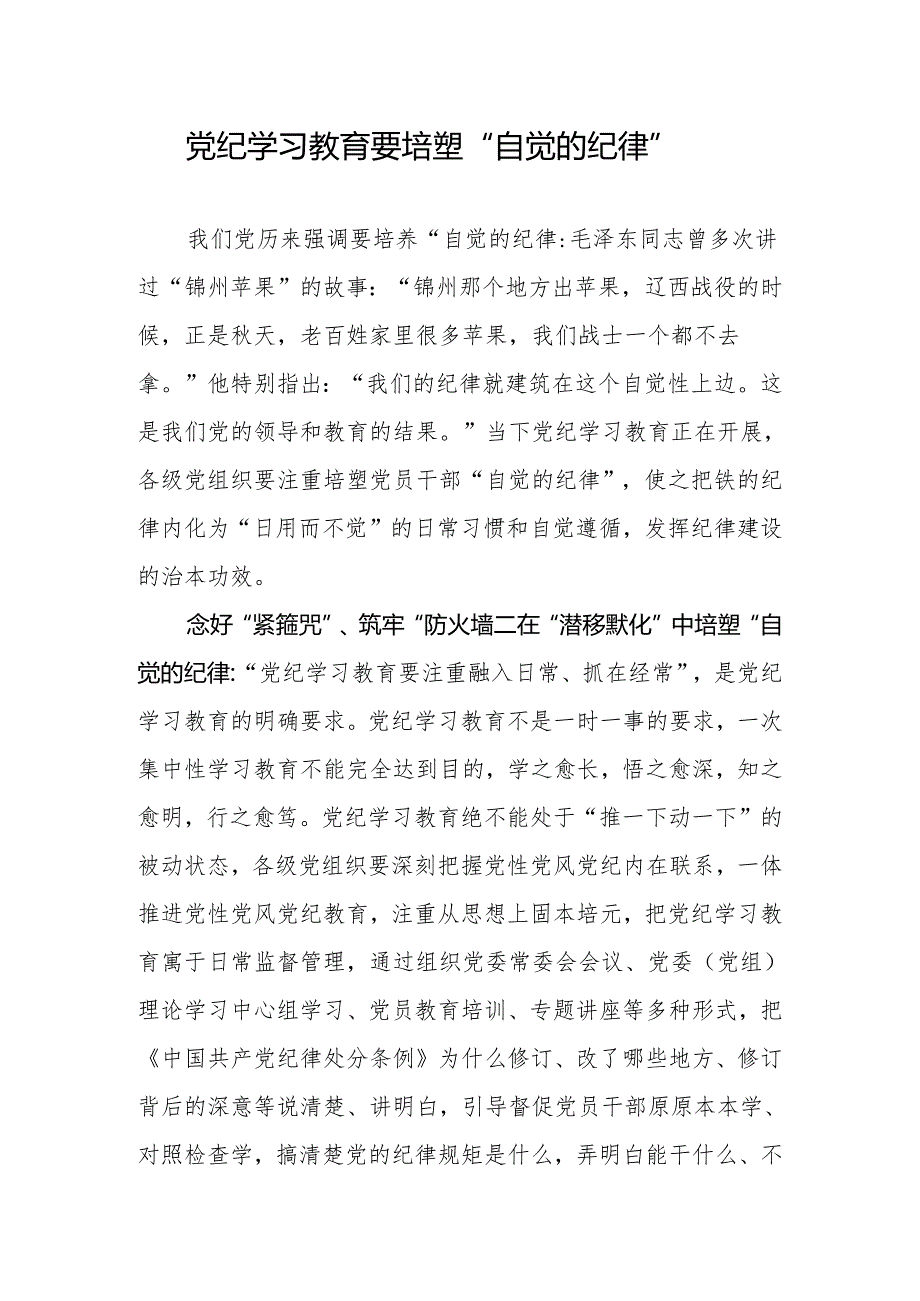 党纪学习教育要培塑“自觉的纪律”
我们党历来强调要培养“自觉的纪律:毛泽东同志曾多次讲
过“锦州苹果”的故事：“锦州那个地方出苹果，辽西战役的时
候，正是秋天，老百姓家里很多苹果，我们战士一个都不去
拿。”他特别指出：“我们的纪律就建筑在这个自觉性上边。这
是我们党的领导和教育的结果。”当下党纪学习教育正在开展，
各级党组织要注重培塑党员干部“自觉的纪律”，使之把铁的纪
律内化为“日用而不觉”的日常习惯和自觉遵循，发挥纪律建设
的治本功效。
念好“紧箍咒”、筑牢“防火墙二在“潜移默化”中培塑“自
觉的纪律:“党纪学习教育要注重融入日常、抓在经常”，是党纪
学习教育的明确要求。党纪学习教育不是一时一事的要求，一次
集中性学习教育不能完全达到目的，学之愈长，悟之愈深，知之
愈明，行之愈笃。党纪学习教育绝不能处于“推一下动一下”的
被动状态，各级党组织要深刻把握党性党风党纪内在联系，一体
推进党性党风党纪教育，注重从思想上固本培元，把党纪学习教
育寓于日常监督管理，通过组织党委常委会会议、党委（党组）
理论学习中心组学习、党员教育培训、专题讲座等多种形式，把
《中国共产党纪律处分条例》为什么修订、改了哪些地方、修订
背后的深意等说清楚、讲明白，引导督促党员干部原原本本学、
对照检查学，搞清楚党的纪律规矩是什么，弄明白能干什么、不